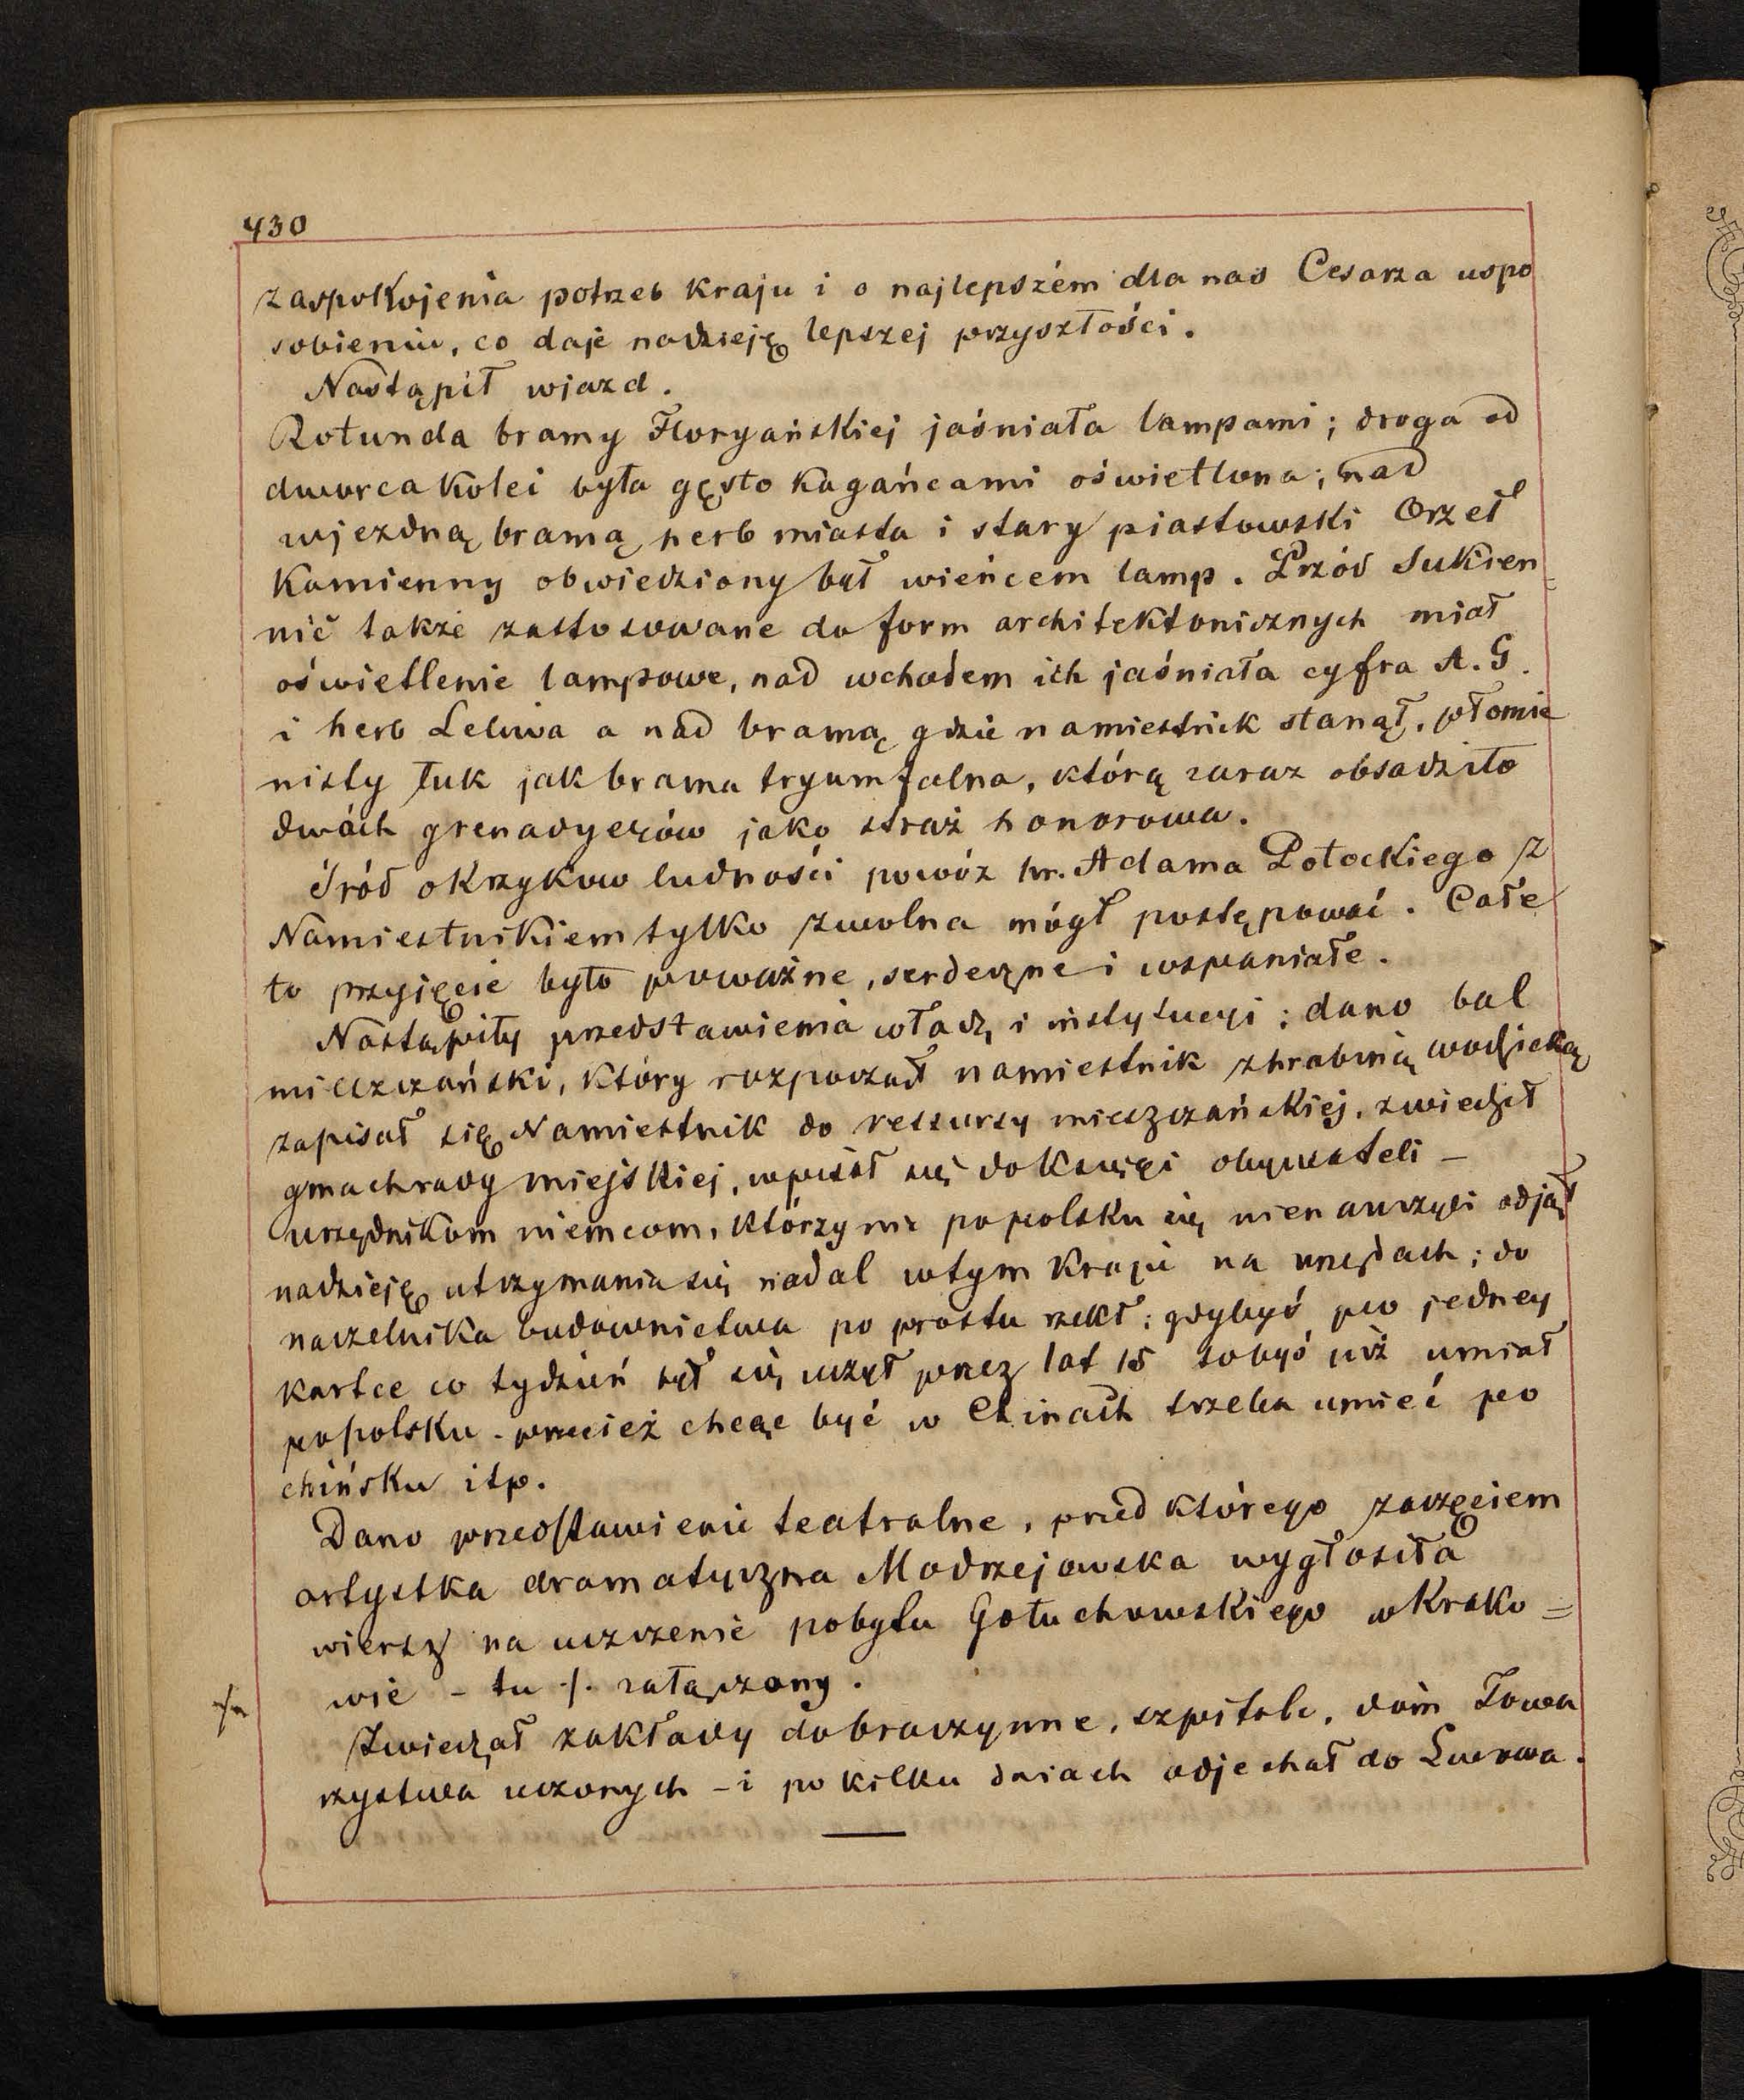 430
zaspokojenia potrzeb kraju i o najlepszém dla nas Cesarza uspo
sobieniu, co daje nadzieję lepszej przyszłości.
Nastąpił wjazd.
Rotunda bramy Floryańskiej jaśniała lampami; droga od
dworca kolei była gęsto kagańcami oświetlona; nad
wjezdną bramą herb miasta i stary piastowski Orzeł
kamienny obwiedziony był wieńcem lamp. Przód Sukien=
nic także zastosowane do form architektonicznych miał
oświetlenie lampowe, nad wchodem ich jaśniała cyfra A. G.
i herb Leliwa a nad bramą gdzie namiestnik stanął, płomie
nisty łuk jak brama tryumfalna, którą zaraz obsadziło
dwóch grenadyerów jako straż honorowa.
Śród okrzyków ludności powóz hr. Adama Potockiego z
Namiestnikiem tylko zwolna mógł postępować. Całe
to przyjęcie było poważne, serdeczne i wspaniałe.
Nastąpiły przedstawienia władz i instytucyi; dano bal
mieszczański, który rozpoczął namiestnik z hrabiną Wodzicką
zapisał się Namiestnik do ressursy mieszczańskiej, zwiedził
gmach rady miejskiej, wpisał się do księgi obywateli –
urzędnikom niemcom, którzy nie po polsku się nie nauczyli odjął
nadzieję utrzymania się nadal w tym kraju na urzędach; do
naczelnika budownictwa po prostu rzekł: gdybyś po jedney
kartce co tydzień był się uczył przez lat 15 tobyś już umiał
po polsku – przecież chcąc być w Chinach trzeba umieć po
chińsku itp.
Dano przedstawienie teatralne, przed którego zaczęciem
artystka dramatyczna Modrzejowska wygłosiła
wiersz na uczczenie pobytu Gołuchowskiego w Krako=
wie – tu ·/. załączony.
·/.
Zwiedzał zakłady dobroczynne, szpitale, dom Towa
rzystwa uczonych – i po kilku dniach odjechał do Lwowa.